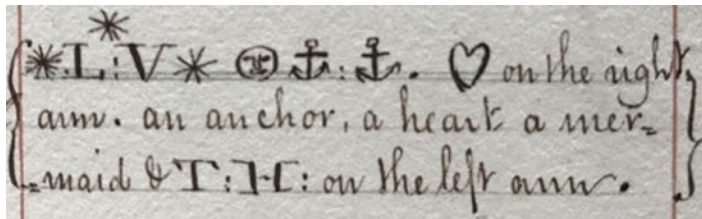 L:V on the right
arm. an anchor, a heart a mer=
=maid & T:H: on the left arm.